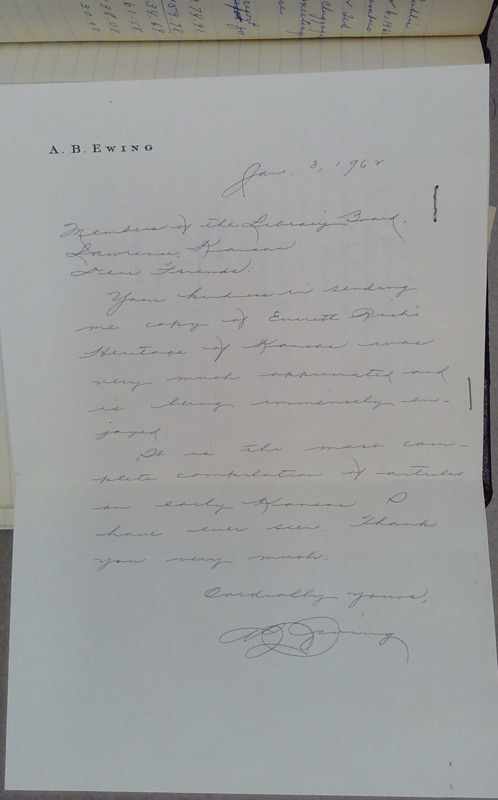 A. B. EWING
Jan. 3, 1962
Members of the Library Board,
Lawrence, Kansas
Dear Friends:
Your kindness in sending
me copy of Everett Rich's
Heritage of Kansas was
very much appreciated and
is being immensely en-
joyed
It is the most com-
plete compilation of articles
on early Kansas I
have ever seen. Thank
you very much.
Cordially yours,
AB Ewing